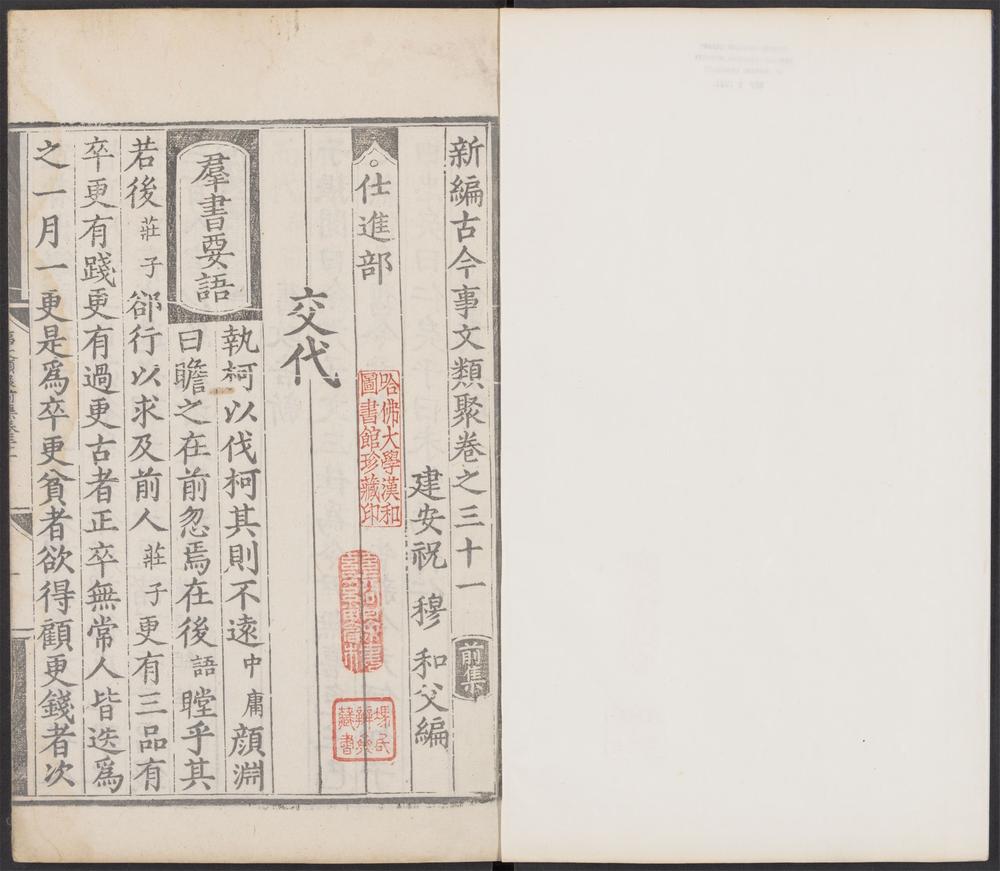 新編古今事文類聚卷之三十一 前集
建安祝 穆 和父編
仕進部
哈佛大學漢和
圖書館珍藏印
交代
羣書要語
執柯以伐柯其則不遠中庸顏淵
曰瞻之在前忽焉在後語瞠乎其
若後莊子郤行以求及前人莊子更有三品有
卒更有踐更有過更古者正卒無常人皆迭爲
之一月一更是爲卒更貧者欲得顧更錢者次